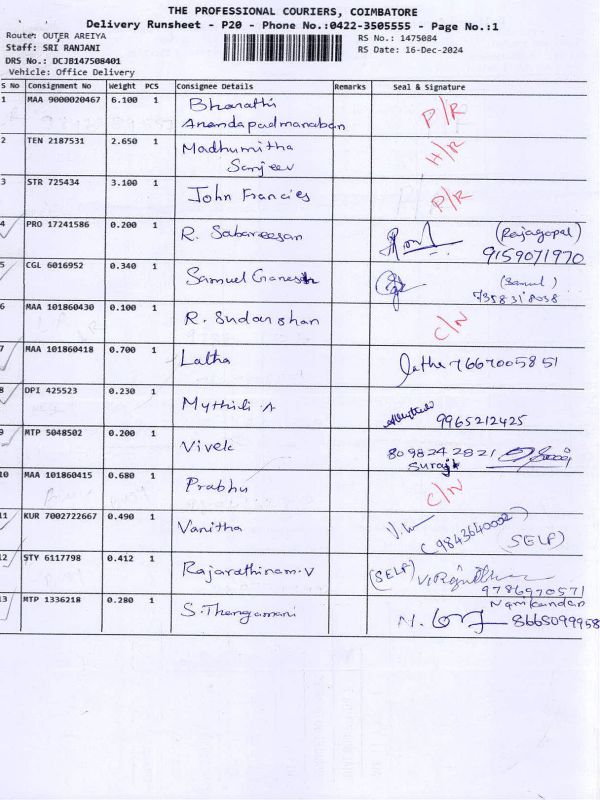 THE PROFESSIONAL COURIERS, COIMBATORE
Delivery Runsheet - P20 - Phone No.:0422-3505555 - Page No.:1
Route: OUTER AREIYA
Staff: SRI RANJANI
RS No.: 1475084
RS Date: 16-Dec-2024
DRS No.: DCJB147508401
Vehicle: Office Delivery
S No Consignment No Weight PCS Consignee Details Remarks Seal & Signature
1 MAA 9000020467 6.100 1 Bharathi P/R
Anandapadmanaban
2 TEN 2187531 2.650 1 Madhumitha H/R
Sanjeev
3 STR 725434 3.100 1 John Francies P/R
4 PRO 17241586 0.200 1 R. Sabareesan (Rajagopal)
9159071970
5 CGL 6016952 0.340 1 Samuel Ganesh (Samuel)
7358318058
6 MAA 101860430 0.100 1 R. Sudarshan C/N
7 MAA 101860418 0.700 1 Latha Latha 7667005851
8 DPI 425523 0.230 1 Mythili A 9965212425
9 MTP 5048502 0.200 1 Vivek 8098242821
Surajt
10 MAA 101860415 0.680 1 Prabhu C/N
11 KUR 7002722667 0.490 1 Vanitha (9843640002)
(SELF)
12 STY 6117798 0.412 1 Rajarathinam.V (SELF)
9786970571
13 MTP 1336218 0.280 1 S.Thangamani Namkandan
8665099958